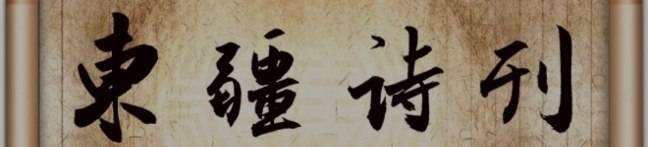 東疆诗刊